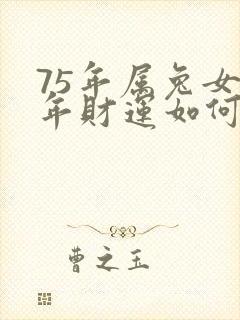 75年属兔女
年财运如何
曹之玉